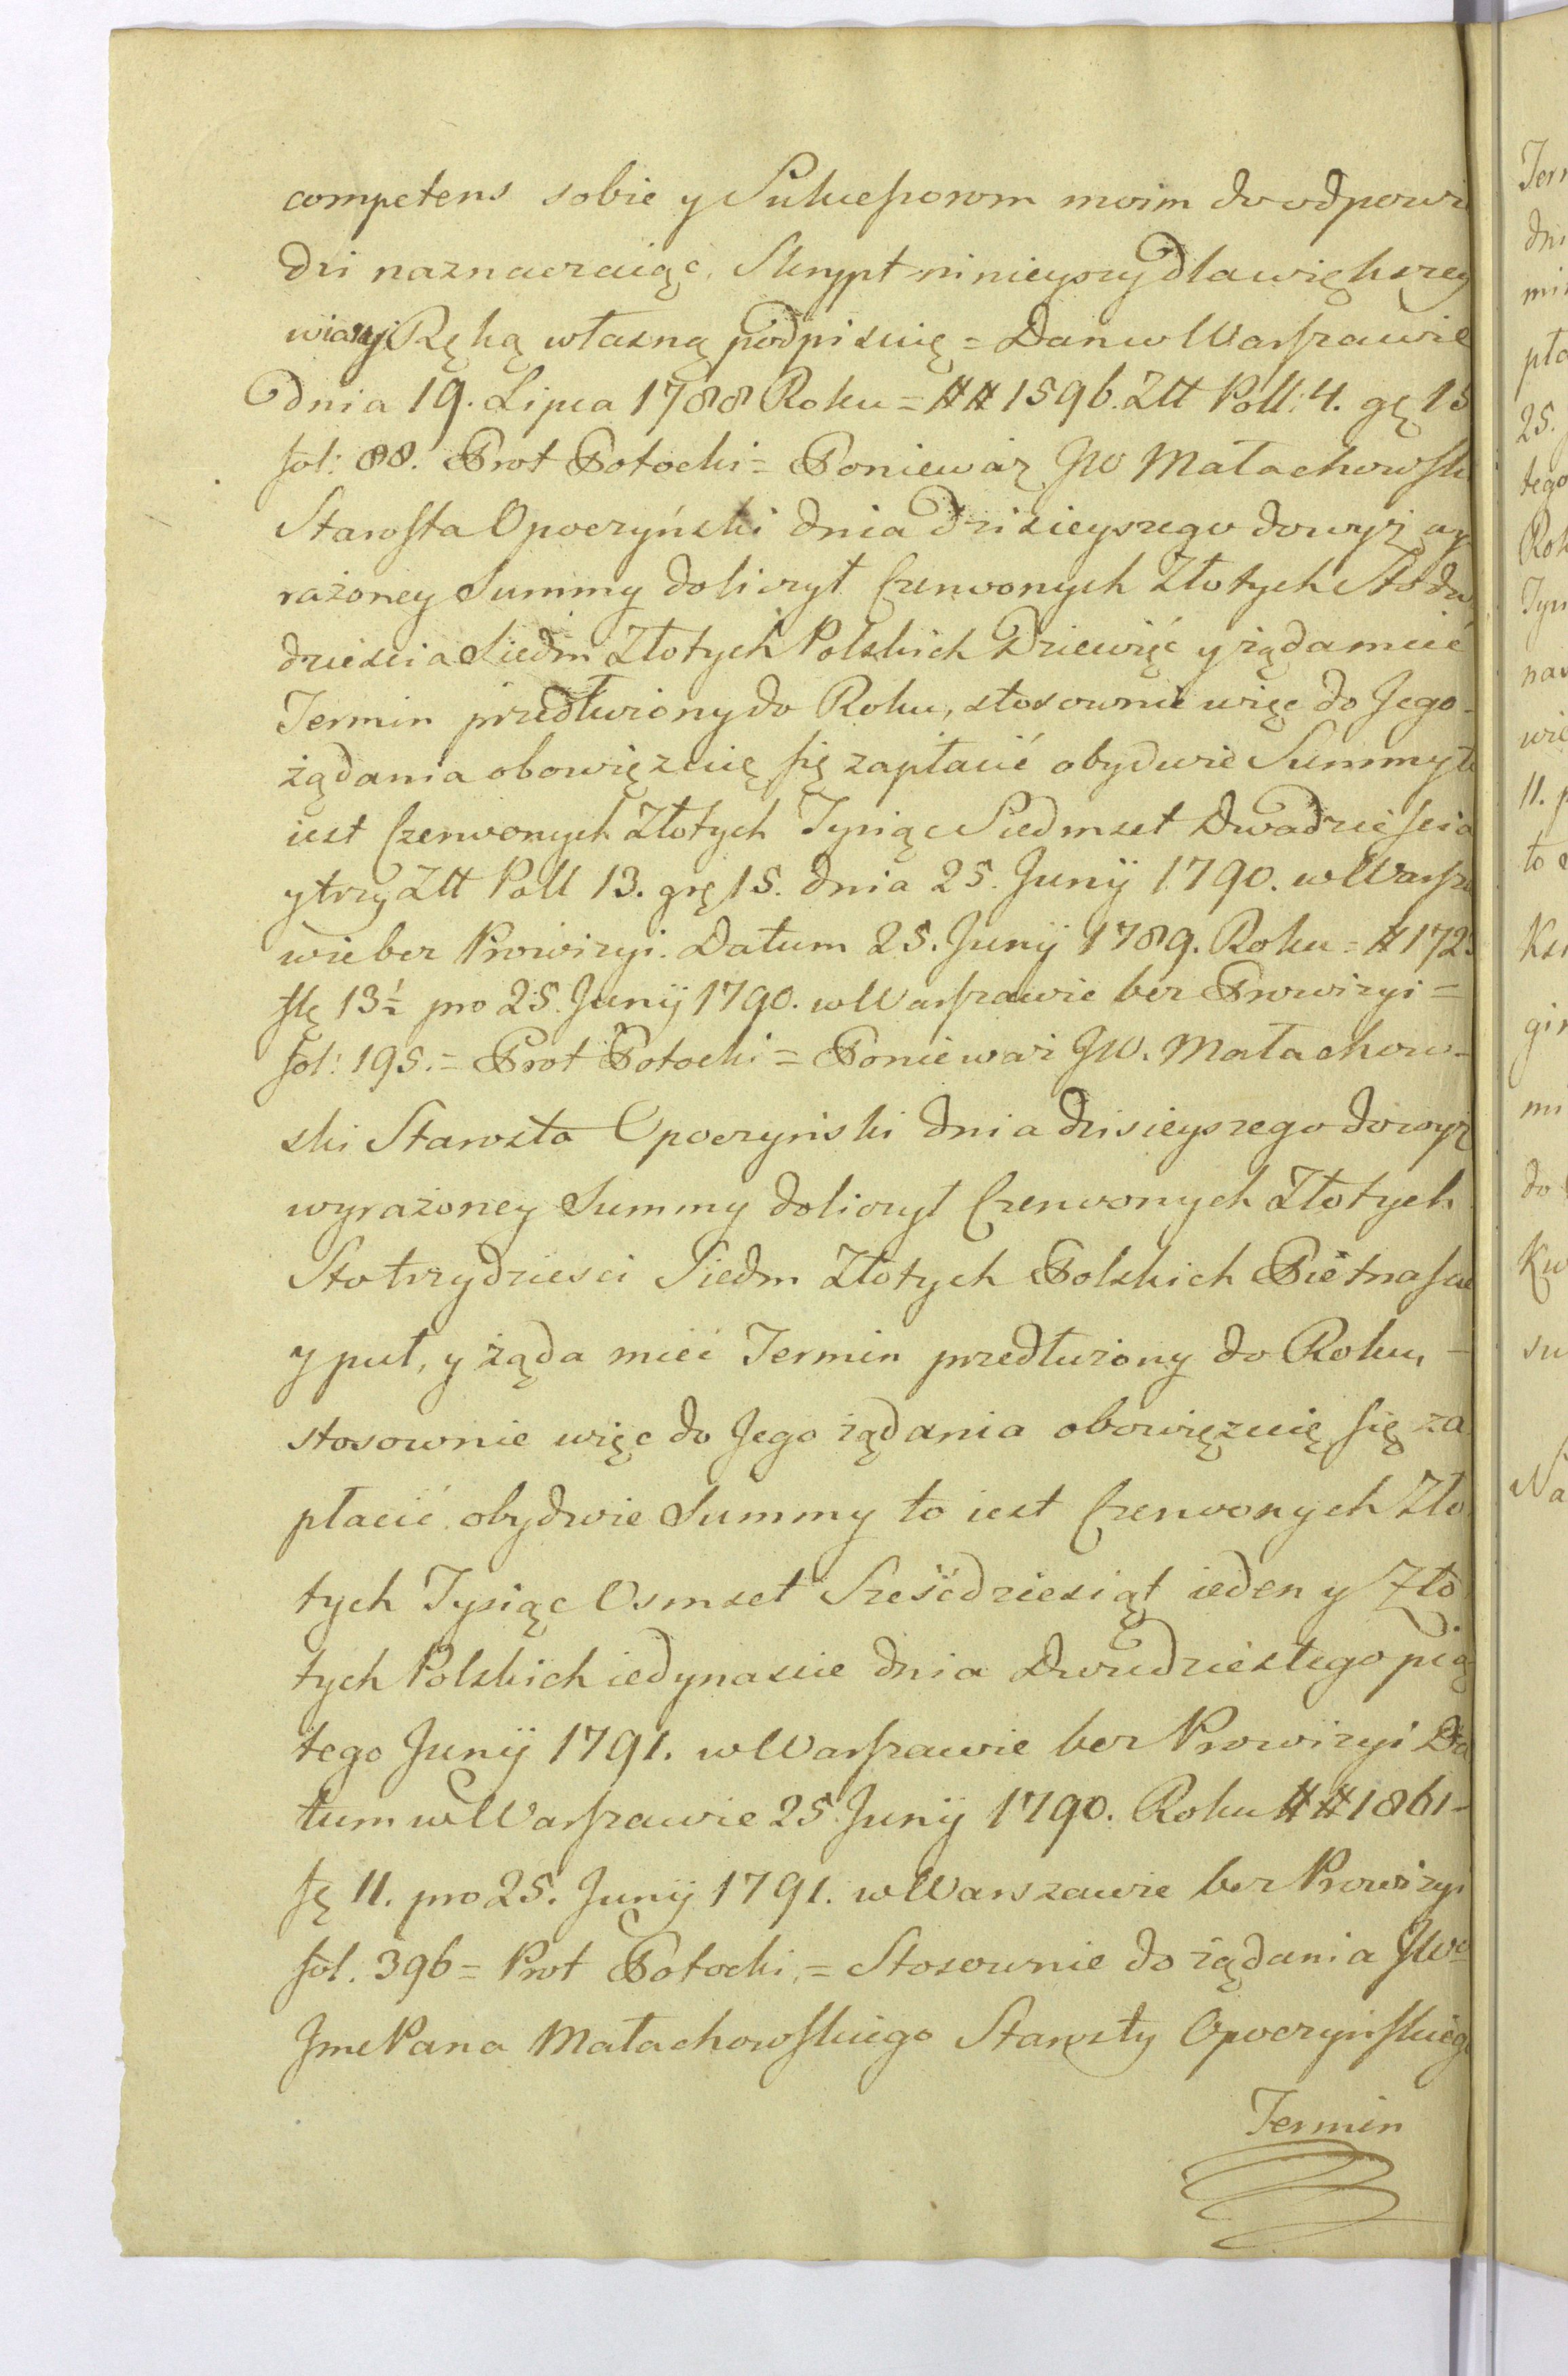 competens sobie y Sukcessorom moim do odpowie
dzi naznaczaiąc, Skrypt ninieyszy dla większey
wiary Ręką własną podpisuię = Dan w Warszawie
dnia 19. Lipca 1788 Roku = ## 1596. Złł Poll: 4. gę 15
fol: 88. Prot Potocki = Ponieważ JW Małachowski
Starosta Opoczyński dnia dzisieyszego do wyż wy
rażoney Summy doliczył Czerwonych Złotych Sto dwa
dziescia Siedm Złotych Polskich Dziewięć y żąda mieć
Termin przedłużony do Roku, stosownie więc do Jego
żądania obowięzuię się zapłacić obydwie Summy to
iest Czerwonych Złotych Tysiąc Siedmset Dwadzieścia
y trzy Złł Poll 13. grę 15. dnia 25. Junÿ 1790. w Warsza
wie bez Prowizyi. Datum 25. Junÿ 1789. Roku = # 1723
flę 13½ pro 25. Junÿ 1790. w Warszawie bez Prowizyi =
fol: 195. = Prot Potocki = Ponieważ JW. Małachow-
ski Starosta Opoczyński dnia dzisieyszego do wyż
wyrażoney Summy doliczył Czerwonych Złotych
Sto trzydziesci Siedm Złotych Polskich Piętnaście
y puł, y żąda mieć Termin przedłużony do Roku, -
stosownie więc do Jego żądania obowięzuię się za
płacić obydwie Summy to iest Czerwonych Zło
tych Tysiąc Osmset Sześćdziesiąt ieden y Zło
tych Polskich iedynascie dnia Dwudziestego pią
tego Junÿ 1791. w Warszawie bez Prowizyi Da
tum w Warszawie 25 Junÿ 1790. Roku ## 1861 -
fę 11. pro 25. Junÿ 1791. w Warszawie bez Prowizyi
fol. 396 = Prot Potocki, = Stosownie do żądania JWo
Jme Pana Małachowskiego Starosty Opoczyńskiego
Termin